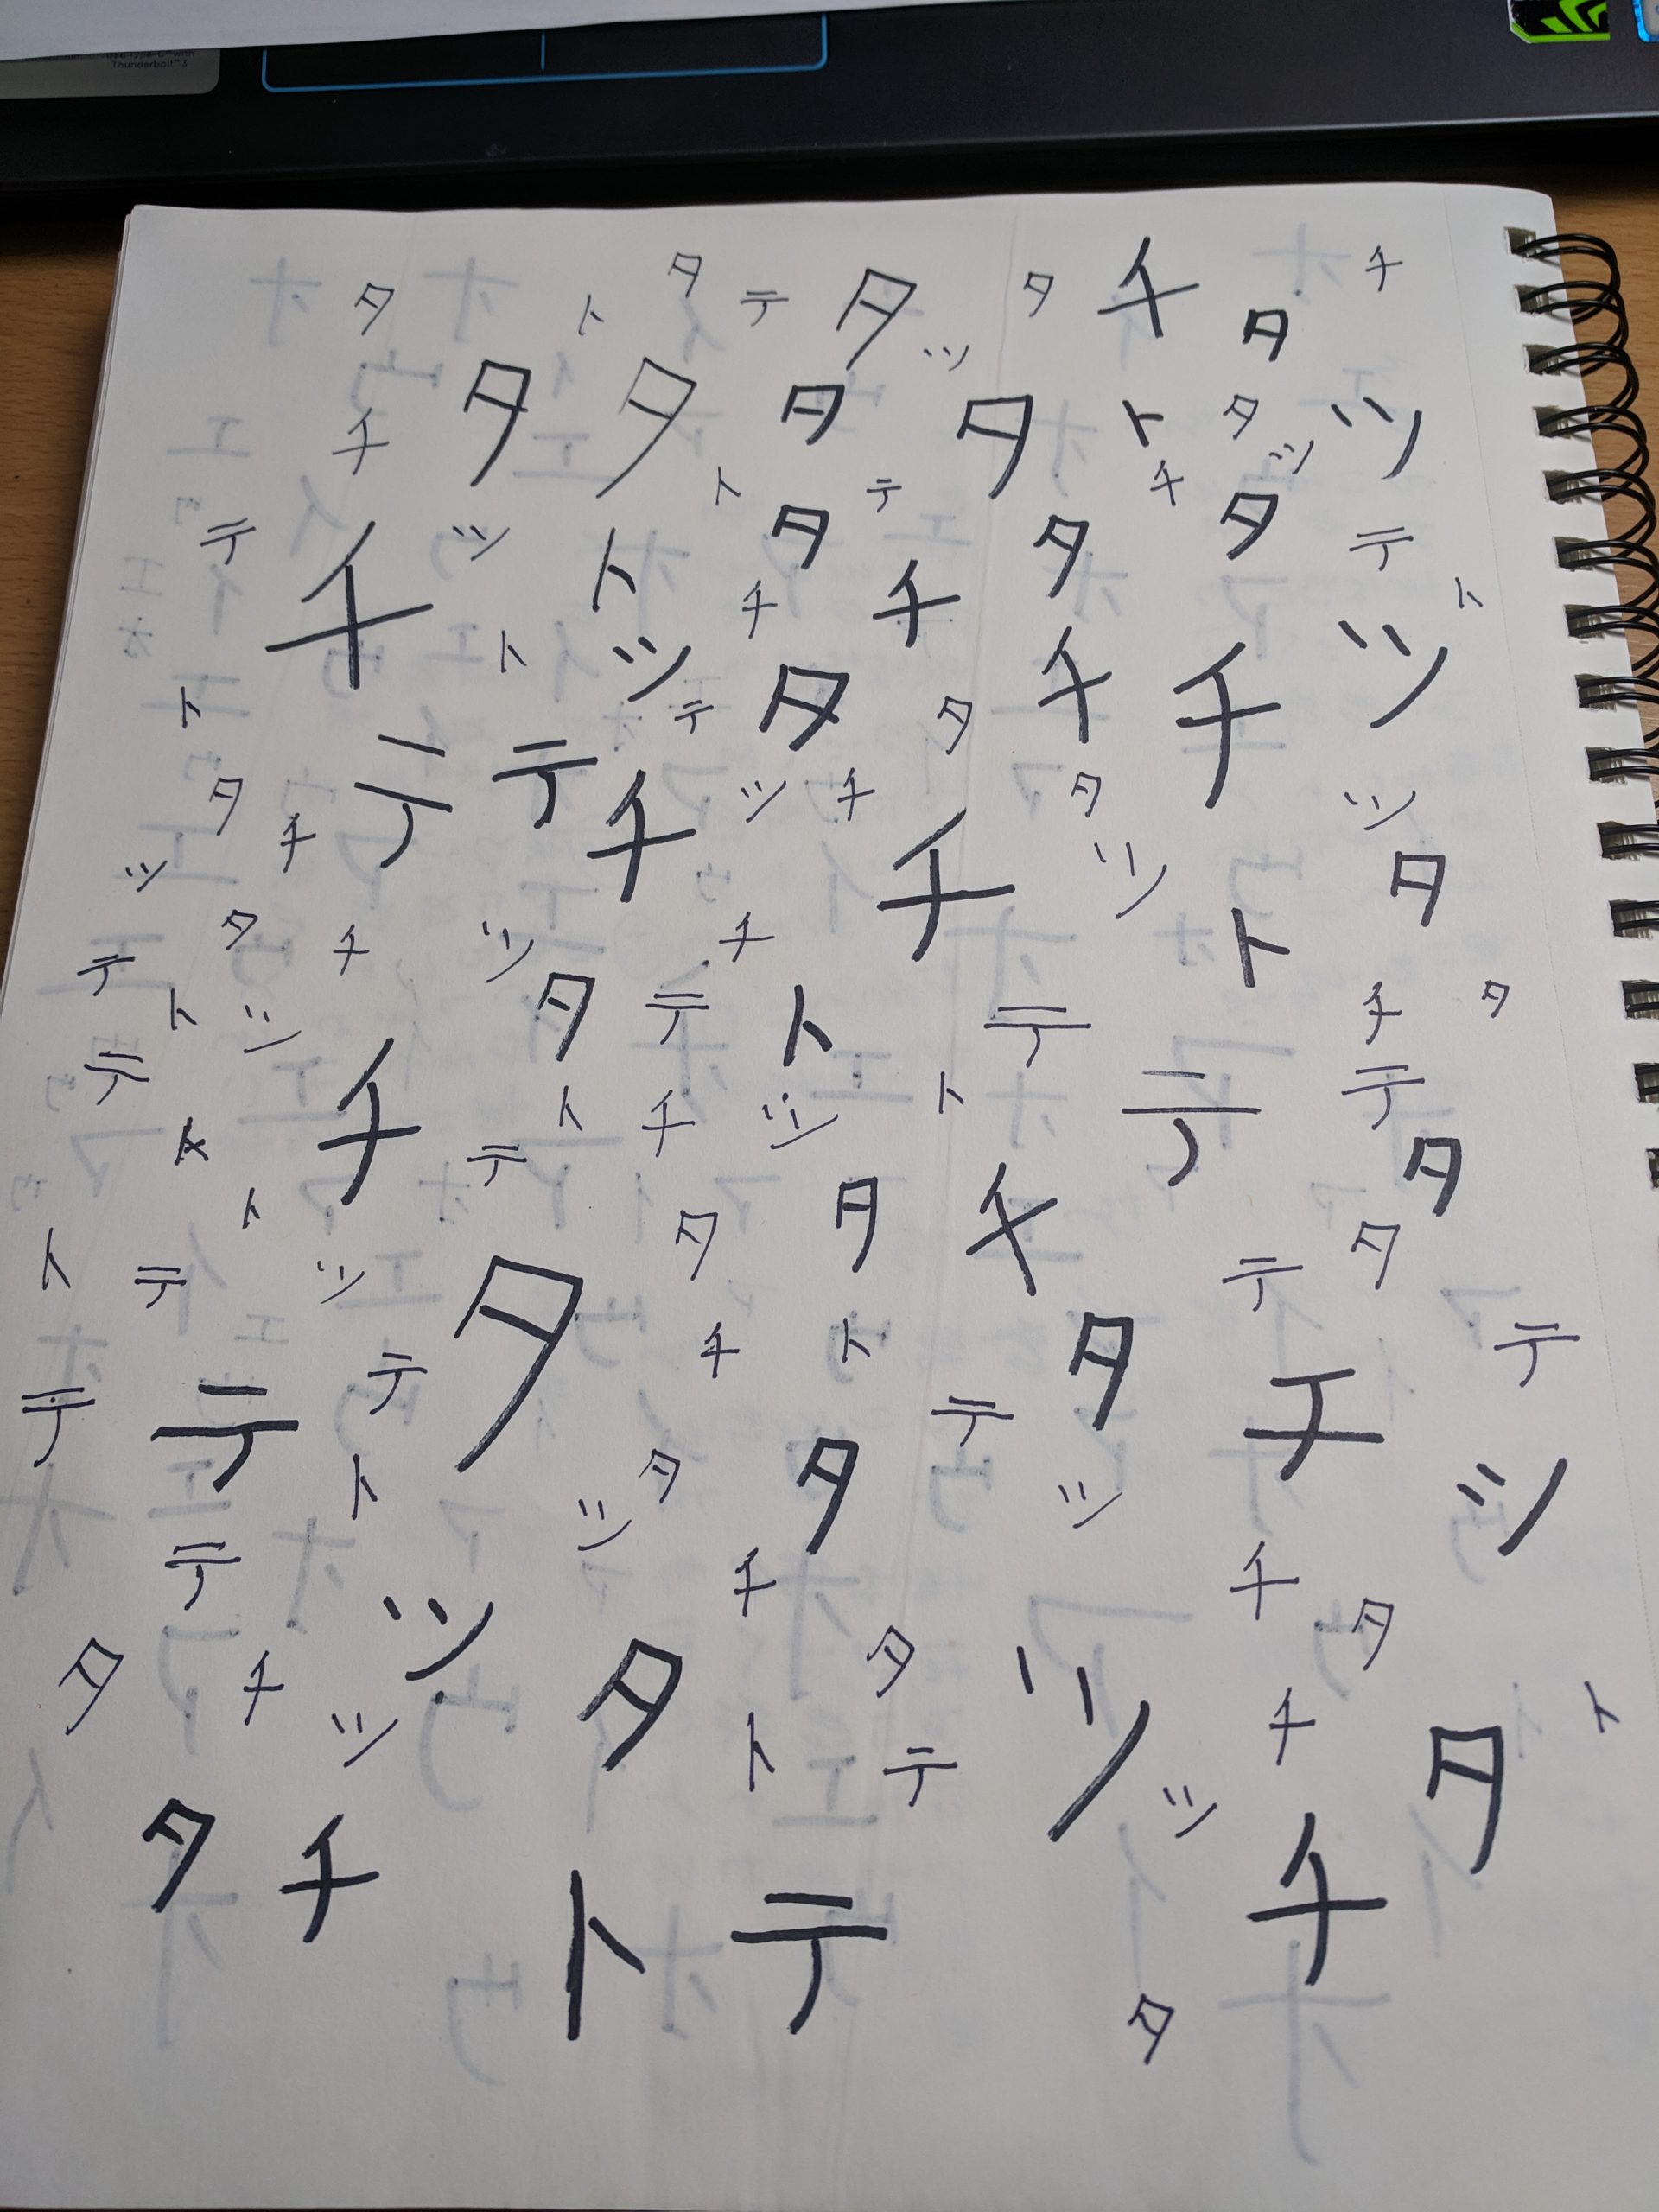 Thunderbolt™ 3
タ ト タ テ タ ッ タ チ タ チ
チ タ タ タ タ ト タ ッ ツ
テ チ ッ ト ト タ テ タ チ タ テ
ト ト ツ チ チ チ チ ツ ト
タ チ テ テ テ タ タ タ ッ
ッ チ ッ チ チ ツ タ
テ タ チ ッ チ ト
ト ッ タ テ ト テ チ タ
テ チ ト チ ッ ト テ テ
ト テ タ
ト ト テ ッ タ タ タ チ テ タ
テ テ テ タ チ ト テ タ チ テ
テ ト ッ タ タ ッ ツ
タ チ ツ チ タ チ タ
ッ タ ト テ ツ ッ チ タ ト
タ チ ト テ チ
タ